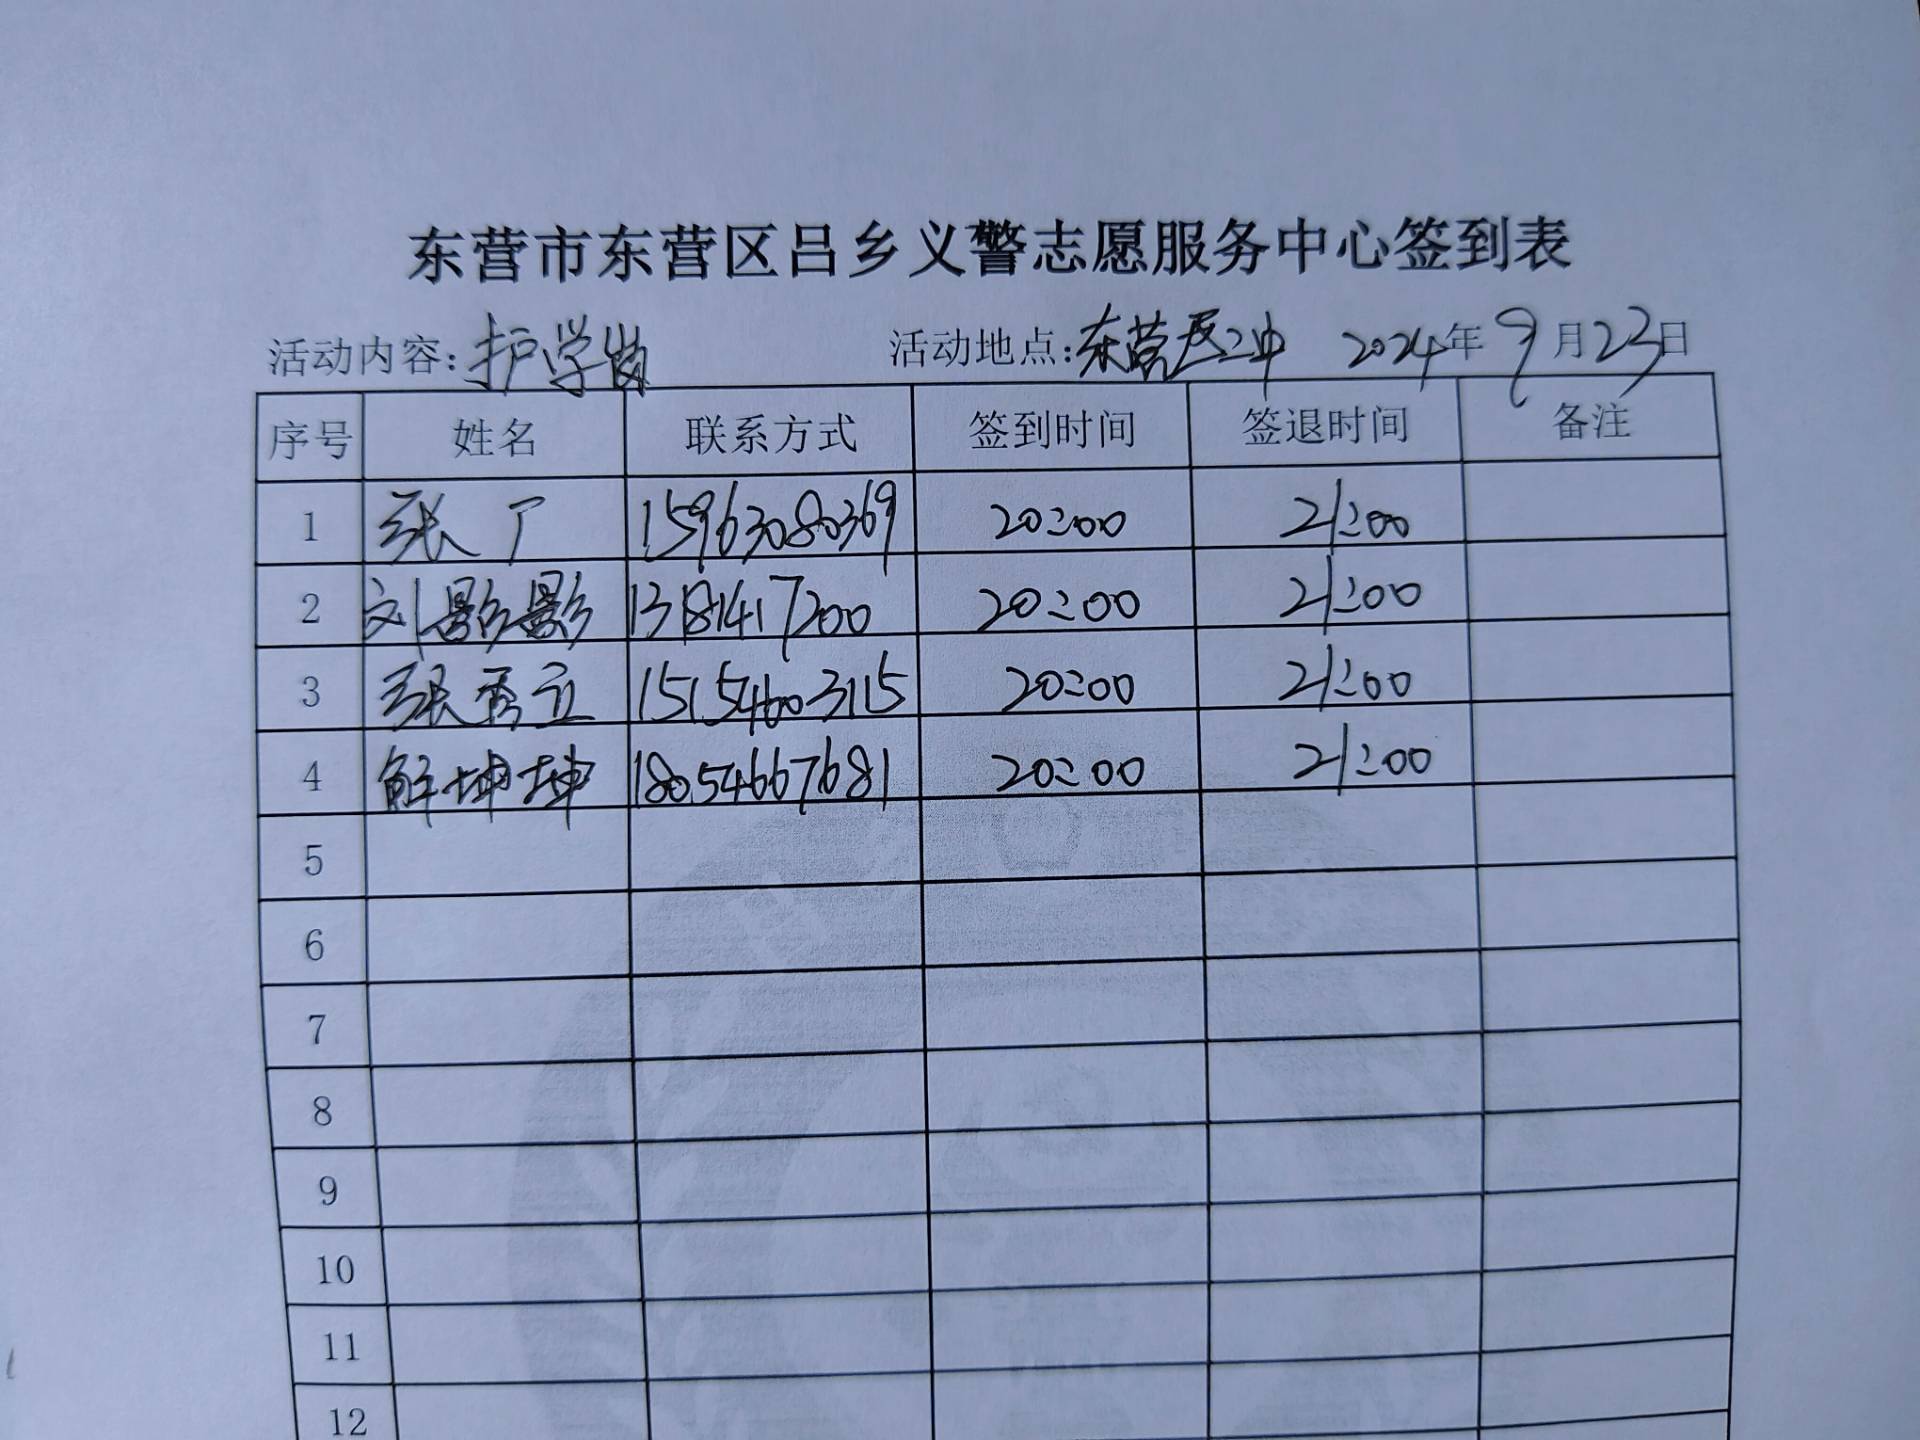 东营市东营区吕乡义警志愿服务中心签到表
活动内容：护学岗 活动地点：东营区二中 2024年9月23日
序号 姓名 联系方式 签到时间 签退时间 备注
1 张厂 15963080369 20:00 21:00
2 刘影影 13181417200 20:00 21:00
3 张秀立 15154603115 20:00 21:00
4 解坤坤 18054667681 20:00 21:00
5
6
7
8
9
10
11
12